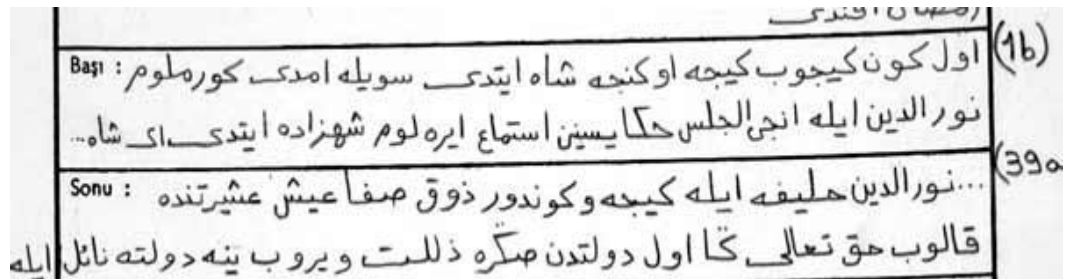 رمضان افندی
Başı : اول كون كیجوب كیجه اوكنجه شاه ایتدی سویله امدی كورملوم (1b)
نورالدین ایله انجی الجلس حكایسین استماع ایره لوم شهزاده ایتدی ای شاه...
Sonu : ...نورالدین حلیفه ایله كیجه و كوندور ذوق صفا عیش عشیرتنده (39a
قالوب حق تعالی كا اول دولتدن صكره ذللت ویروب ینه دولته نائل ایله